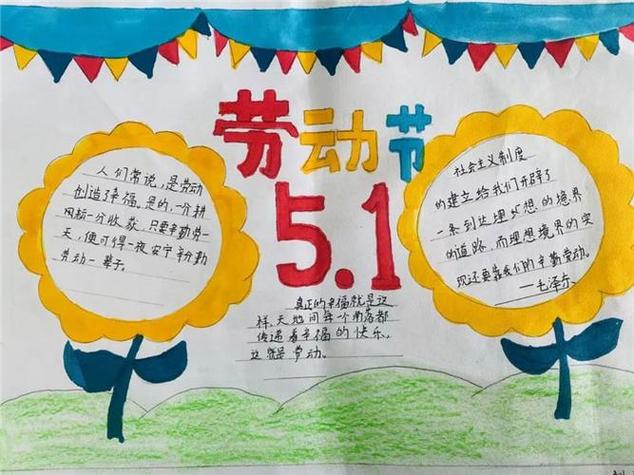 劳动节
5.1
人们常说,是劳动
创造了幸福,是的,一分耕
一分收获,只要辛勤劳
天,便可得一夜安宁,辛勤
劳动一辈子。
社会主义制度
的建立给我们开辟了
一条到达理想的境界
的道路,而理想境界的实
现还要靠我们的辛勤劳动。
——毛泽东
真正的幸福就是这
样,天地间每一个角落都
传递着幸福的快乐,
这就是劳动。